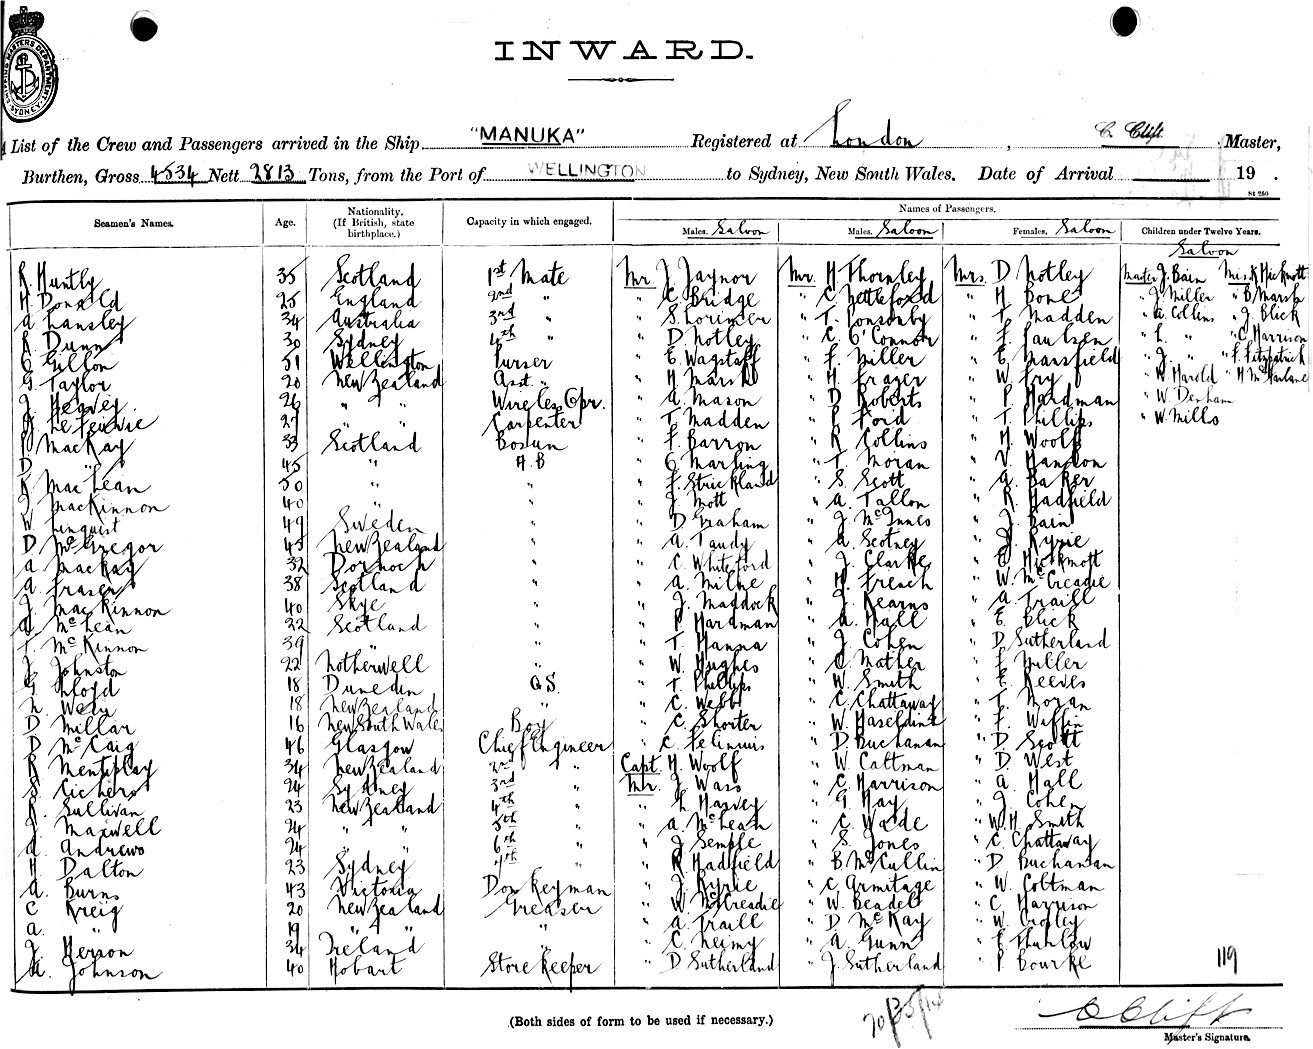 INWARD.
List of the Crew and Passengers arrived in the Ship "MANUKA" Registered at London, C. Clift Master,
Burthen, Gross 4534 Nett 2813 Tons, from the Port of WELLINGTON to Sydney, New South Wales. Date of Arrival 19 .
St 250
Seamen's Names. Age. Nationality. (If British, state birthplace.) Capacity in which engaged. Names of Passengers.
Males. Saloon Males. Saloon Females. Saloon Children under Twelve Years.
Saloon
R Huntly 35 Scotland 1st Mate Mr. J Jaynor Mr. H Thornley Mrs. D Notley Master J. Bain Miss K Hickmott
H Donald 25 England 2nd " " C Bridge " C Nettlefold " H Bone " J Miller " B Marsh
A Lansley 34 Australia 3rd " " S. Lorimer " T. Ponsonby " T. Madden " A Collins " J. Blick
R Dunn 30 Sydney 4th " " D Notley " C O'Connor " F. Paulsen " L. " " C Harrison
C Gillon 51 Wellington Purser " E Wagstaff " F. Miller " E Mansfield " J. " " F. Fitzpatrick
G Taylor 20 New Zealand Asst. " " H Marsh " H. Frazer " W Fry " W Harold " H McFarlane
J. Heavey 26 " " Wireless Opr. " A Mason " D Roberts " P Hardman " W. Denham
29 " " Carpenter " T Madden " P Ford " T Phillips " W. Mills
MacKay 33 Scotland Bosun " F Barron " R Collins " H. Woolf
D " 45 " A.B " G Marling " T. Moran " V Hanlon
R MacLean 50 " " " F. Strickland " S Scott " A Baker
J MacKinnon 40 " " " J Mott " A Tallon " R Hadfield
W Linquist 49 Sweden " " D Graham " J McInnes " J Bain
D McGregor 45 New Zealand " " A. Tandy " A Scotney " J Kyrie
A MacKay 32 Dornoch " " C Whiteford " J. Clarke " E Hickmott
A Fraser 38 Scotland " " A Milne " H French " W. McCreadie
J. MacKinnon 40 Skye " " J. Maddock " J Kearns " A Traill
A. McLean 22 Scotland " " P Hardman " A. Hall " E. Blick
T. McKinnon 39 " " " T Hanna " J Cohen " D. Sutherland
J. Johnston 22 Motherwell " " W. Hughes " C Mather " F Miller
18 Dunedin O.S. " T. Phillips " W. Smith " E Reeves
N Weir 18 New Zealand " " C. Webb " C. Chattaway " T. Moran
D Millar 16 New South Wales Boy " C Shorter " W Haseldine " F. Waffin
D McCaig 46 Glasgow Chief Engineer " C " D. Buchanan " D. Scott
R Mentiplay 34 New Zealand 2nd " Capt. H Woolf " W Coltman " D West
24 Sydney 3rd " Mr. J Wass " C Harrison " A Hall
R. Sullivan 23 New Zealand 4th " " L Harvey " G Hay " J Cohen
J. Maxwell 24 " " 5th " " A McLean " C Wade " W.H. Smith
A. Andrews 24 " " 6th " " J Semple " S Jones " C Chattaway
H Dalton 23 Sydney 7th " " R Hadfield " B McCullin " D Buchanan
A. Burns 43 Victoria Donkeyman " J Kyrie " C Armitage " W. Coltman
C Kreig 20 New Zealand Greaser " W McCreadie " W. Beadel " C Harrison
A. " 19 " " " " A. Traill " D McKay " W Copley
J. Herson 34 Ireland " " C Neimy " A Gunn " E Thurlow
A. Johnson 40 Hobart Storekeeper " D Sutherland " J. Sutherland " P. Bourke 119
(Both sides of form to be used if necessary.)
C Clift
Master's Signature.